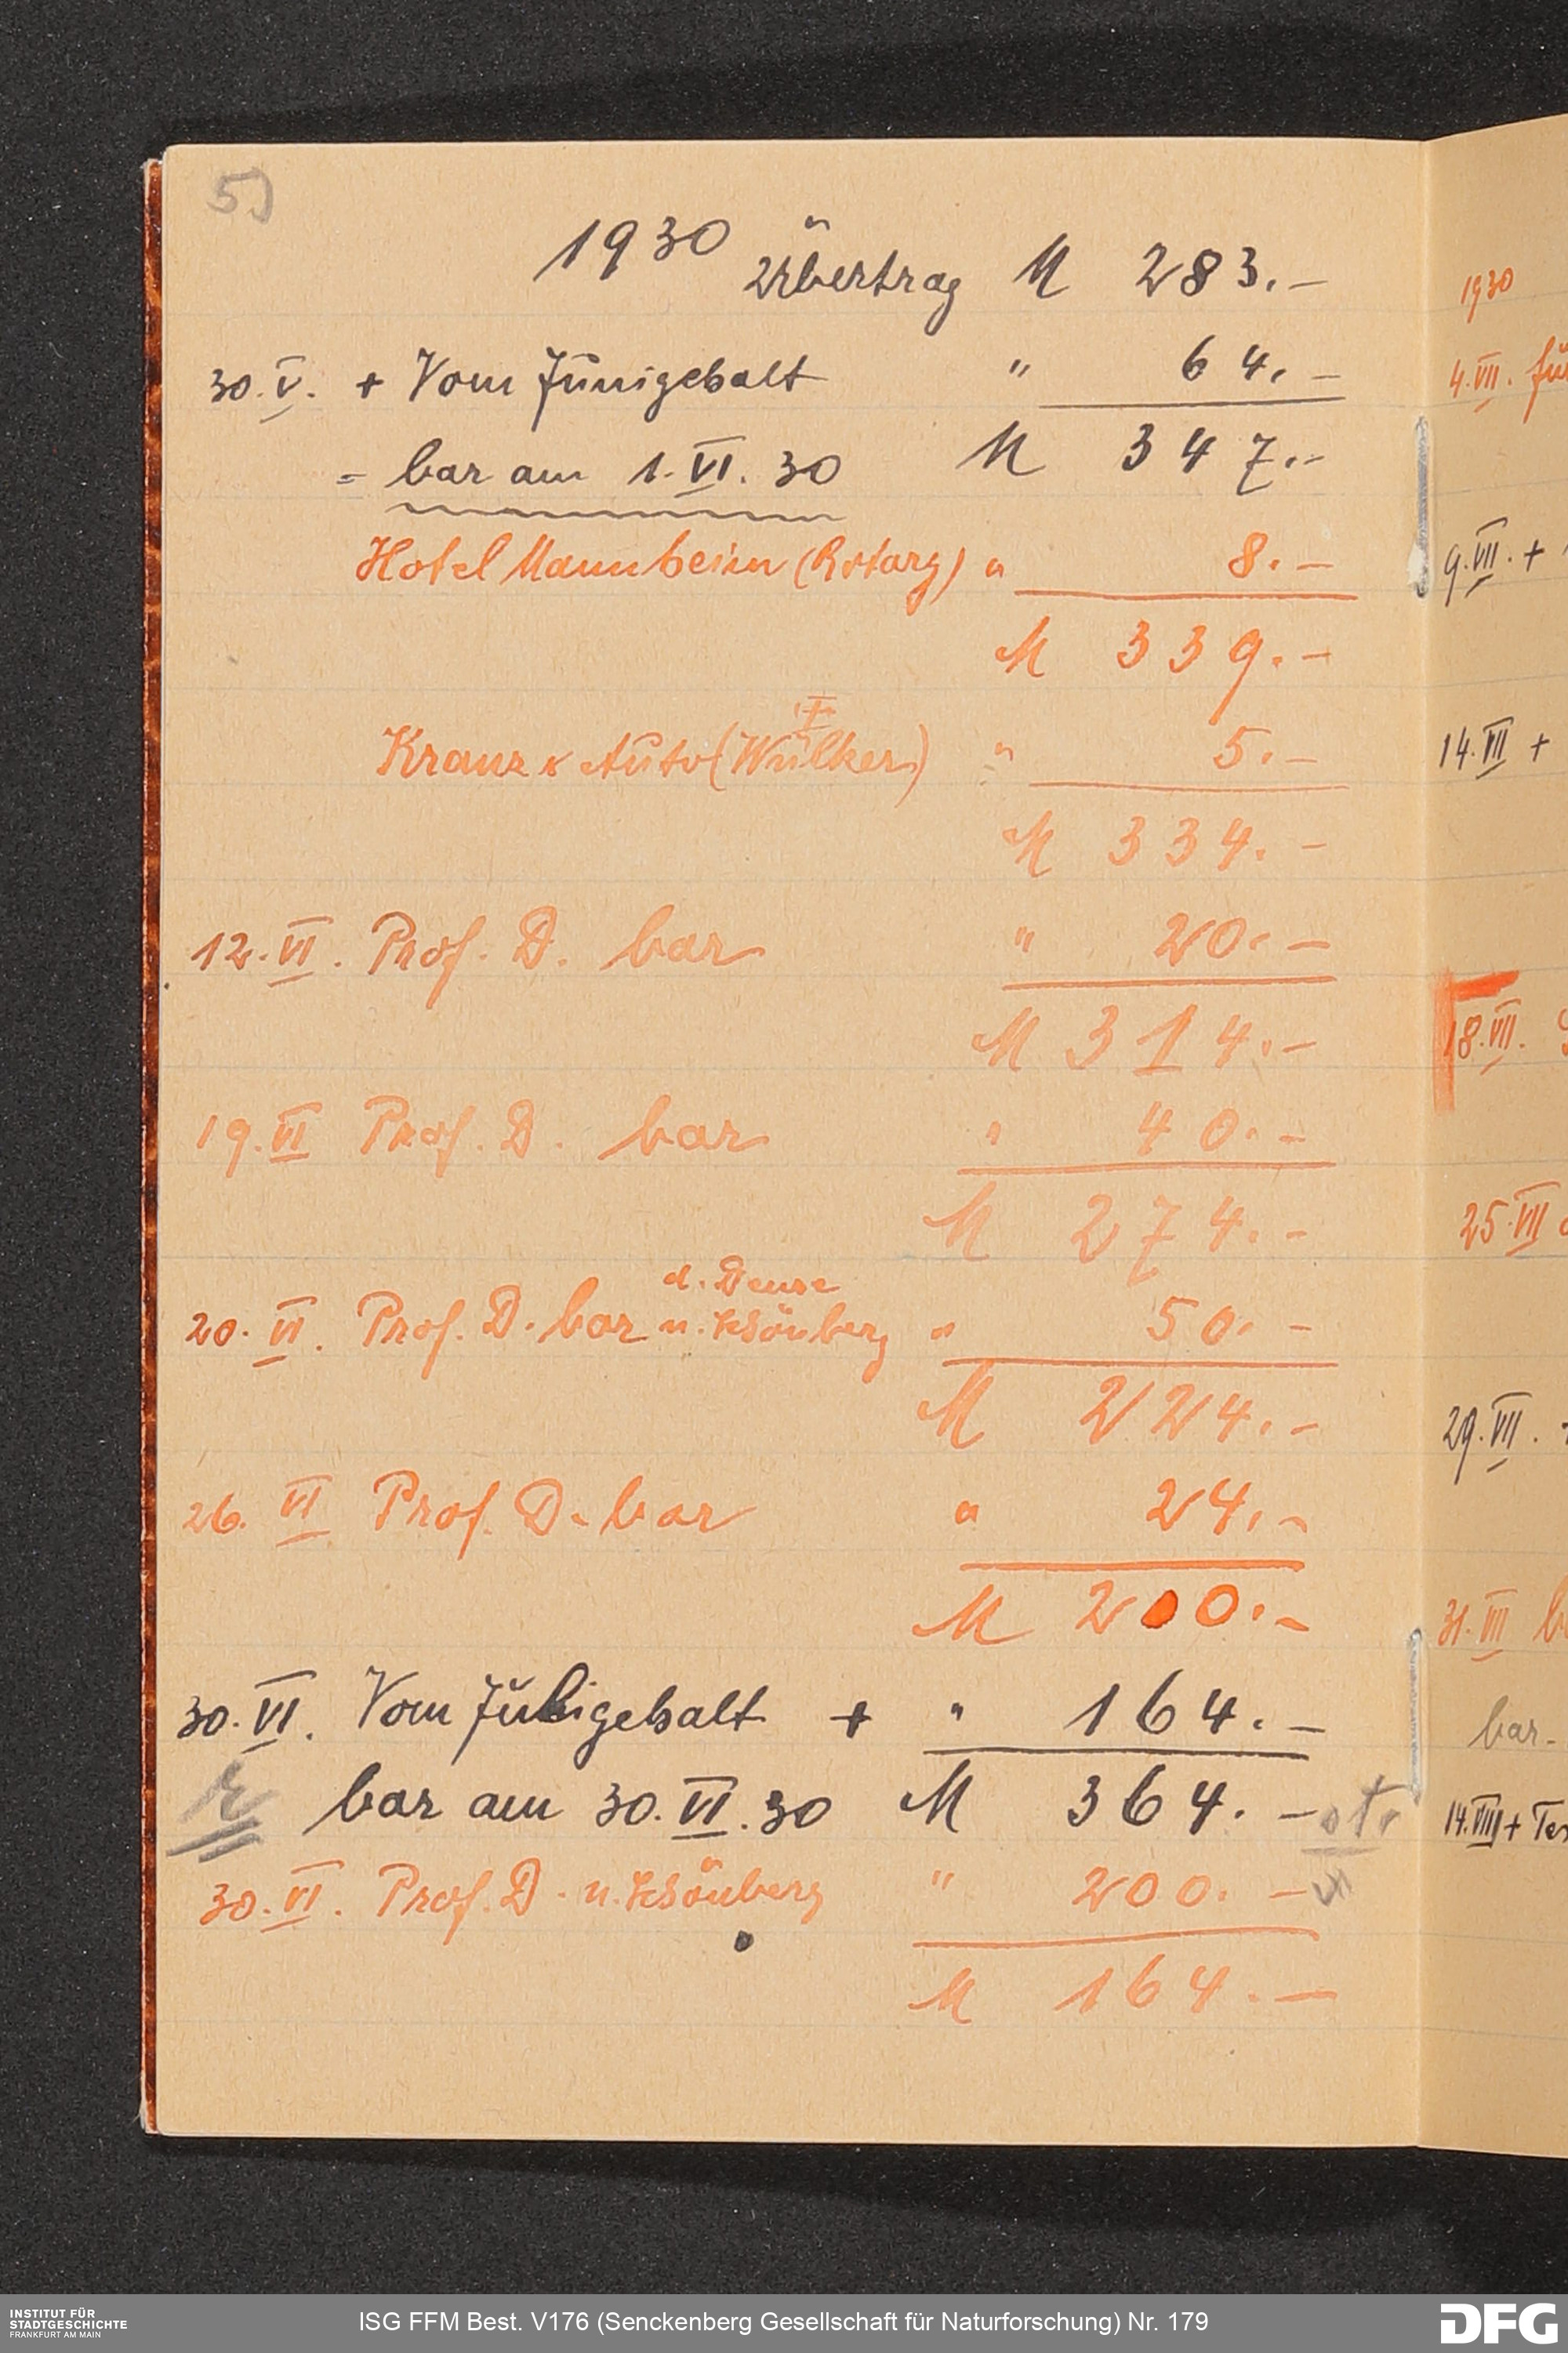 5)
1930 Übertrag M 283.–
30.V. + Vom Junigehalt " 64.–
= bar am 1.VI.30 M 347.–
Hotel Mannheim (Rotary) " 8.–
M 339.–
Kranz & Auto (Wülker) " 5.–
M 334.–
12.VI. Prof. D. bar " 20.–
M 314.–
19.VI Prof. D. bar " 40.–
M 274.–
20.VI. Prof. D. bar n. Schönberg " 50.–
M 224.–
26.VI Prof. D. bar " 24.–
M 200.–
30.VI. Vom Juligehalt + " 164.–
bar am 30.VI.30 M 364.–
30.VI. Prof. D. n. Schönberg " 200.–
M 164.–
1930
4.VII. für
9.VII. +
14.VII +
18.VII.
25.VII
29.VII.
31.VII
bar
14.VIII +
INSTITUT FÜR
STADTGESCHICHTE
FRANKFURT AM MAIN
ISG FFM Best. V176 (Senckenberg Gesellschaft für Naturforschung) Nr. 179
DFG